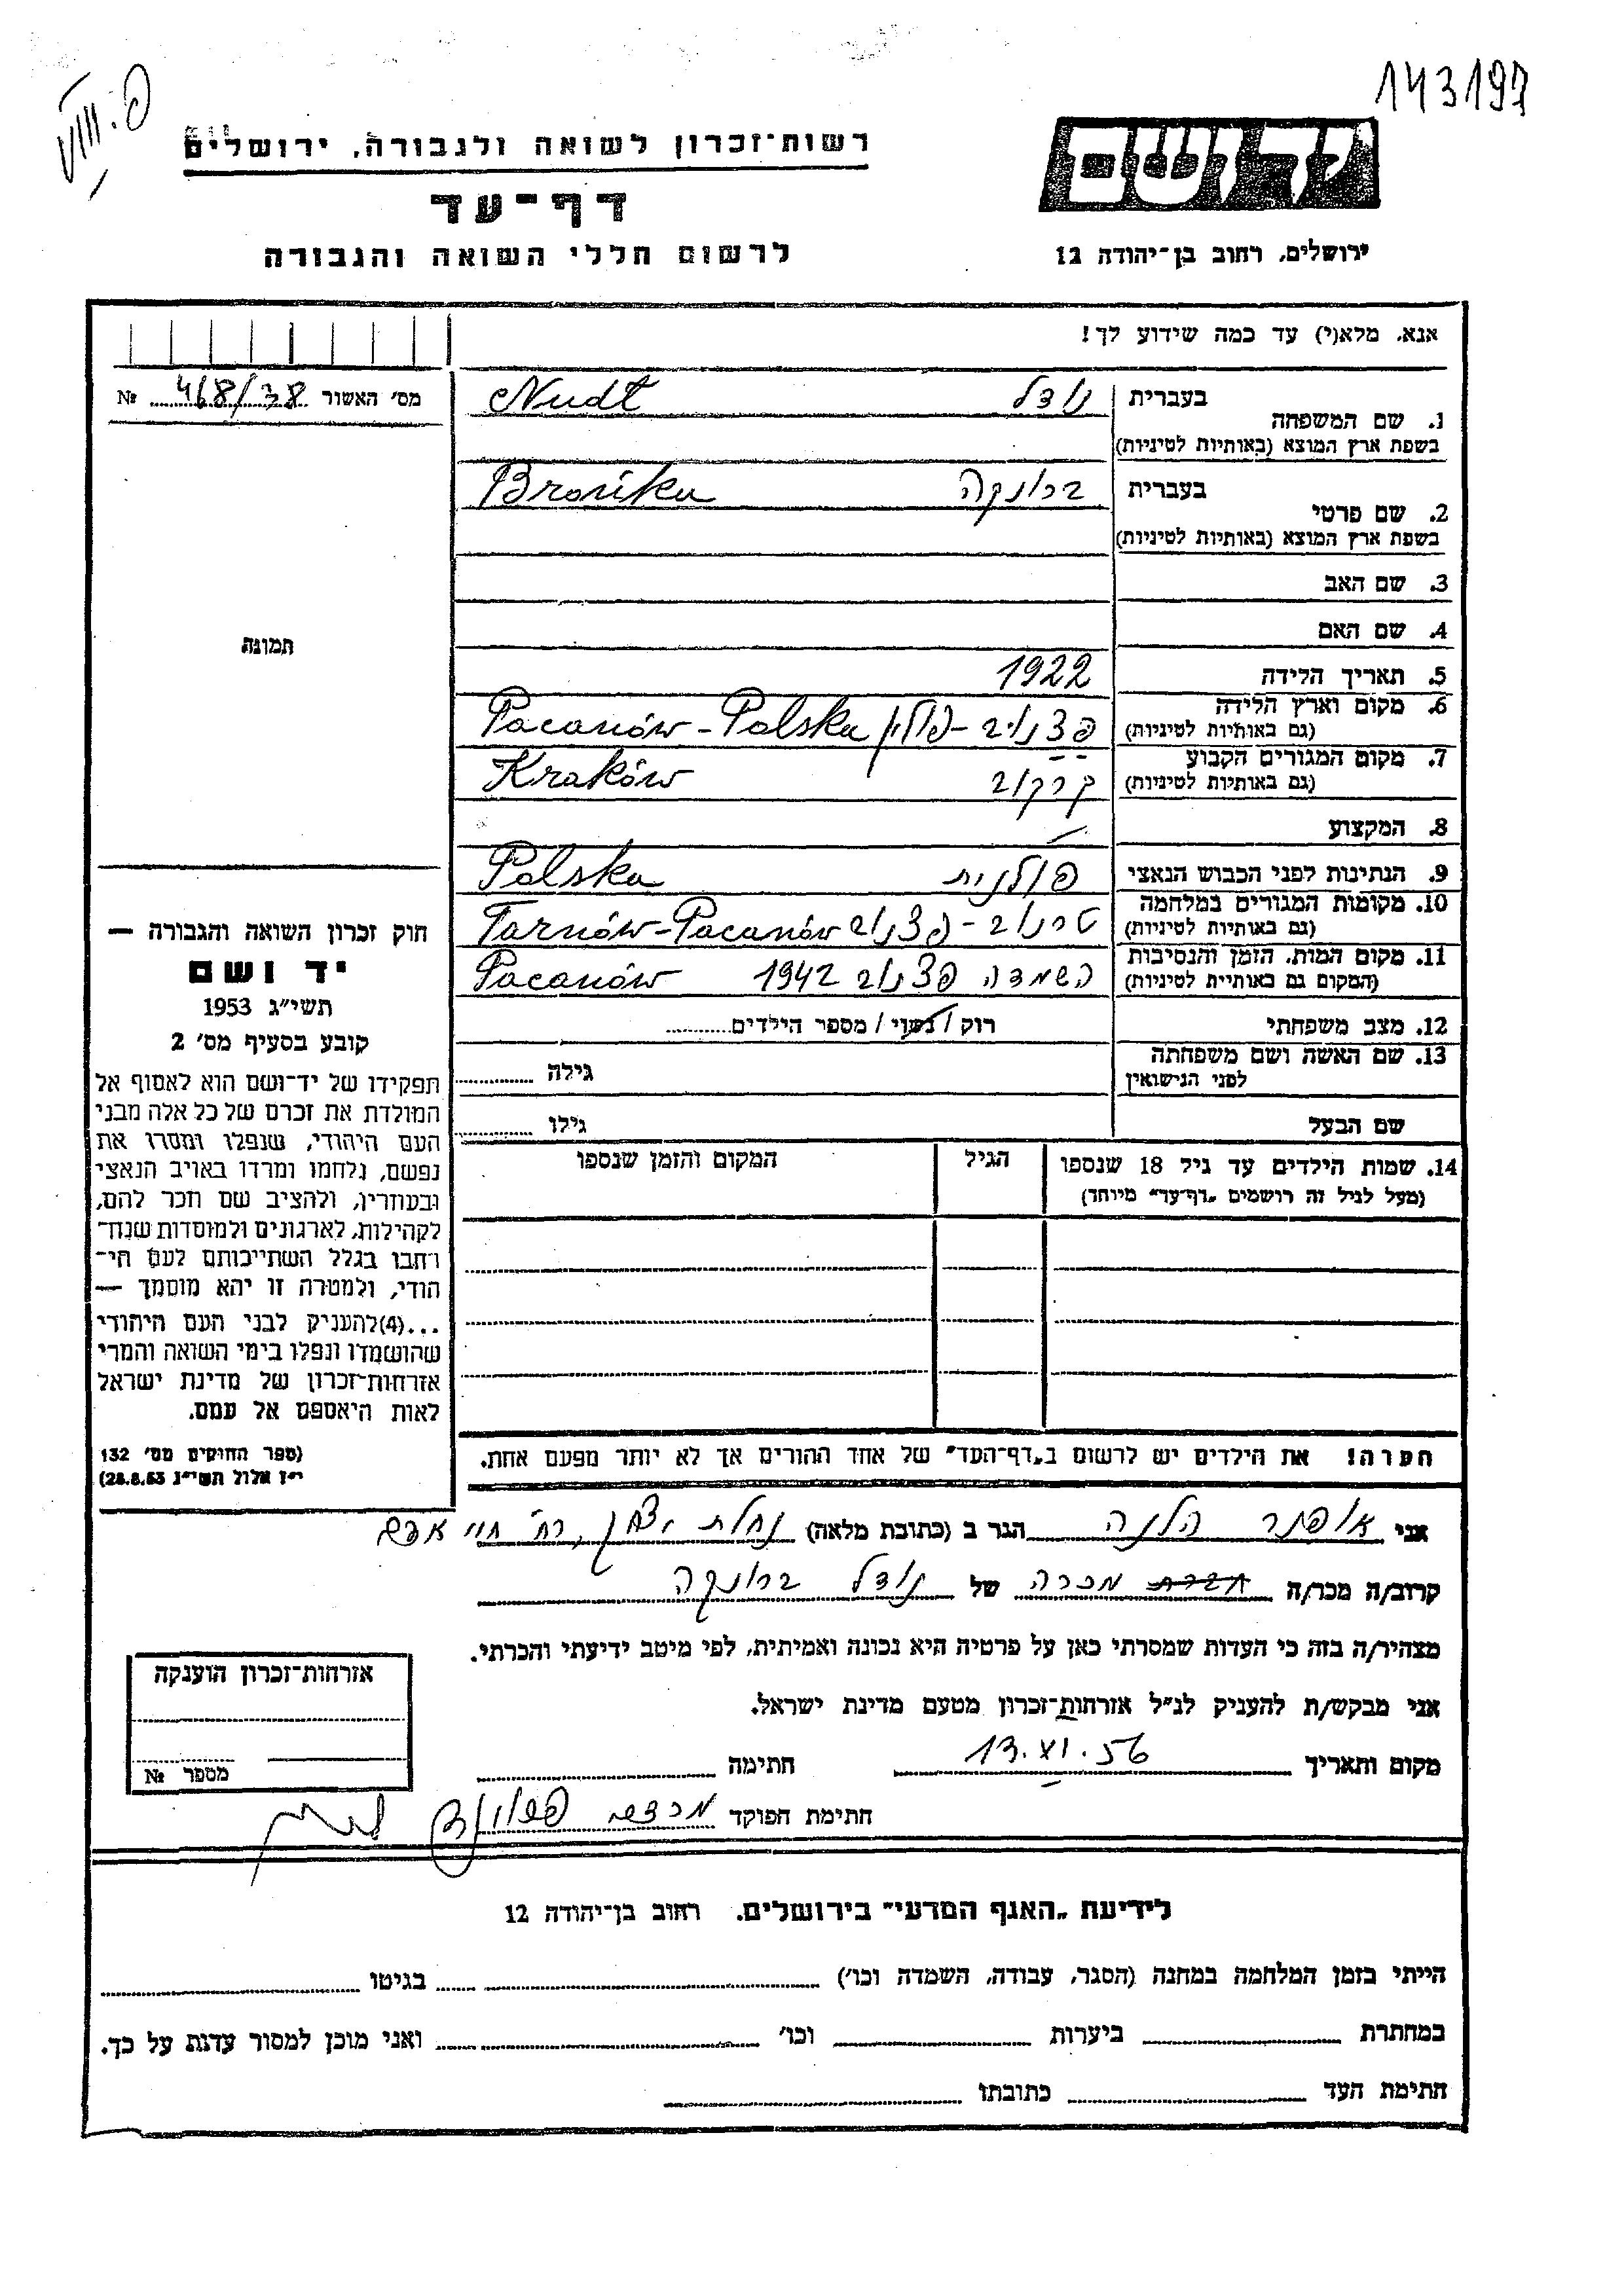 143197
פ. VIII
יד ושם
ירושלים, רחוב בן־יהודה 12
רשות־זכרון לשואה ולגבורה, ירושלים
דף־עד
לרשום חללי השואה והגבורה
אנא, מלא(י) עד כמה שידוע לך!
מס׳ האשור 468/38 №
תמונה
1. שם המשפחה בעברית נודל Nudt
בשפת ארץ המוצא (באותיות לטיניות)
2. שם פרטי בעברית ברונקה Bronka
בשפת ארץ המוצא (באותיות לטיניות)
3. שם האב
4. שם האם
5. תאריך הלידה 1922
6. מקום וארץ הלידה פצנוב - פולין Pacanów - Polska
(גם באותיות לטיניות)
7. מקום המגורים הקבוע קרקוב Kraków
(גם באותיות לטיניות)
8. המקצוע
9. הנתינות לפני הכבוש הנאצי פולנית Polska
10. מקומות המגורים במלחמה טרנוב - פצנוב Tarnów - Pacanów
(גם באותיות לטיניות)
11. מקום המות, הזמן והנסיבות השמדה פצנוב 1942 Pacanów
(המקום גם באותיות לטיניות)
12. מצב משפחתי רוק / נשוי / מספר הילדים
13. שם האשה ושם משפחתה גילה
לפני הנישואין
שם הבעל גילו
14. שמות הילדים עד גיל 18 שנספו הגיל המקום והזמן שנספו
(מעל לגיל זה רושמים „דף־עד״ מיוחד)
הערה! את הילדים יש לרשום ב„דף־העד״ של אחד ההורים אך לא יותר מפעם אחת.
חוק זכרון השואה והגבורה —
יד ושם
תשי״ג 1953
קובע בסעיף מס׳ 2
תפקידו של יד־ושם הוא לאסוף אל
המולדת את זכרם של כל אלה מבני
העם היהודי, שנפלו ומסרו את
נפשם, נלחמו ומרדו באויב הנאצי
ובעוזריו, ולהציב שם וזכר להם,
לקהילות, לארגונים ולמוסדות שנח־
רבו בגלל השתייכותם לעם הי־
הודי, ולמטרה זו יהא מוסמך —
...(4) להעניק לבני העם היהודי
שהושמדו ונפלו בימי השואה והמרי
אזרחות־זכרון של מדינת ישראל
לאות היאספם אל עמם.
(ספר החוקים מס׳ 132
י״ז אלול תשי״ג 28.8.53)
אני אופתר הלנה הגר ב (כתובת מלאה) נחלת יצחק, רח׳
קרוב/ה מכר/ה חברת מכרה של נודל ברונקה
מצהיר/ה בזה כי העדות שמסרתי כאן על פרטיה היא נכונה ואמיתית, לפי מיטב ידיעתי והכרתי.
אני מבקש/ת להעניק לנ״ל אזרחות־זכרון מטעם מדינת ישראל.
מקום ותאריך 13.XI.56 חתימה
חתימת הפוקד
אזרחות־זכרון הוענקה
מספר №
לידיעת „האגף המדעי״ בירושלים, רחוב בן־יהודה 12
הייתי בזמן המלחמה במחנה (הסגר, עבודה, השמדה וכו׳) בגיטו
במחתרת ביערות וכו׳ ואני מוכן למסור עדות על כך.
חתימת העד כתובתו